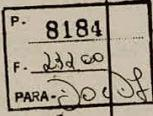 P- 8184
F- 23200
PARA-